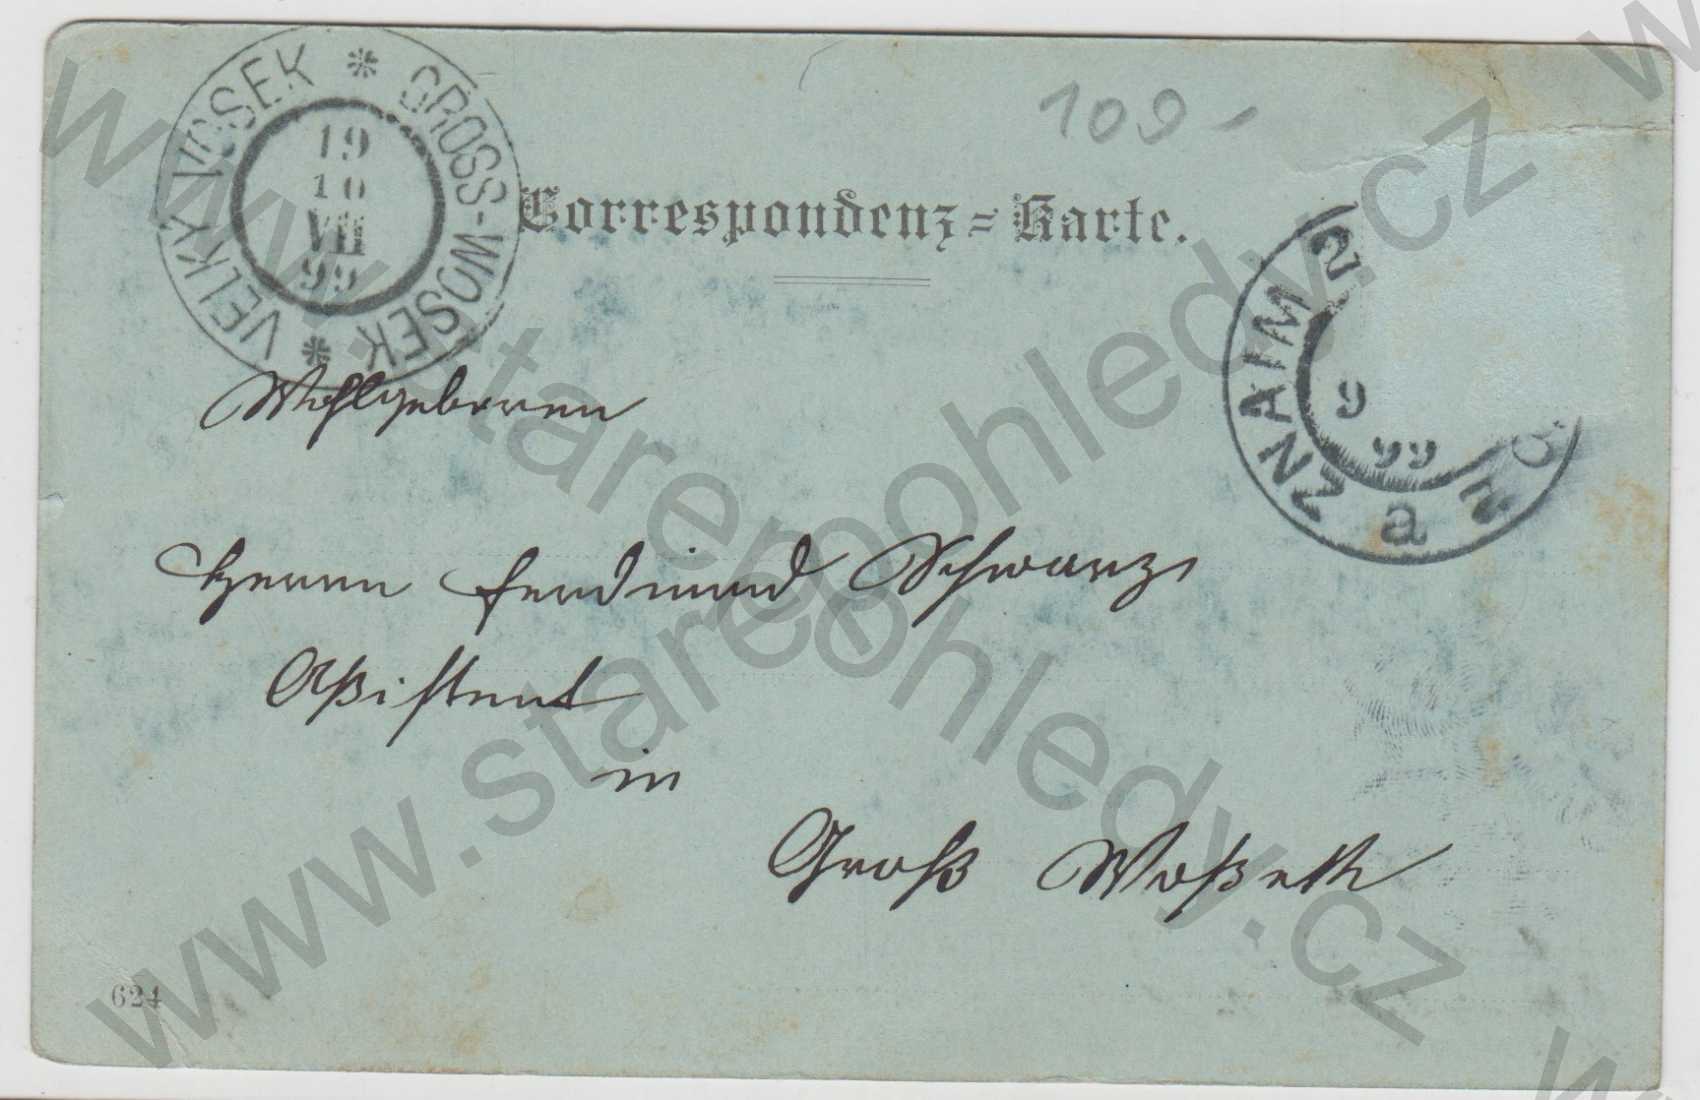 VELKÝ VOSEK * GROSS-WOSSEK *
19
10
VII
99
109-
Correspondenz-Karte.
ZNAIM 2
9
99
a
Wohlgeboren
Herrn Ferdinand Schwarz
Aßistent
in
Groß Woßek
624
www.starepohledy.cz
www.starepohledy.cz